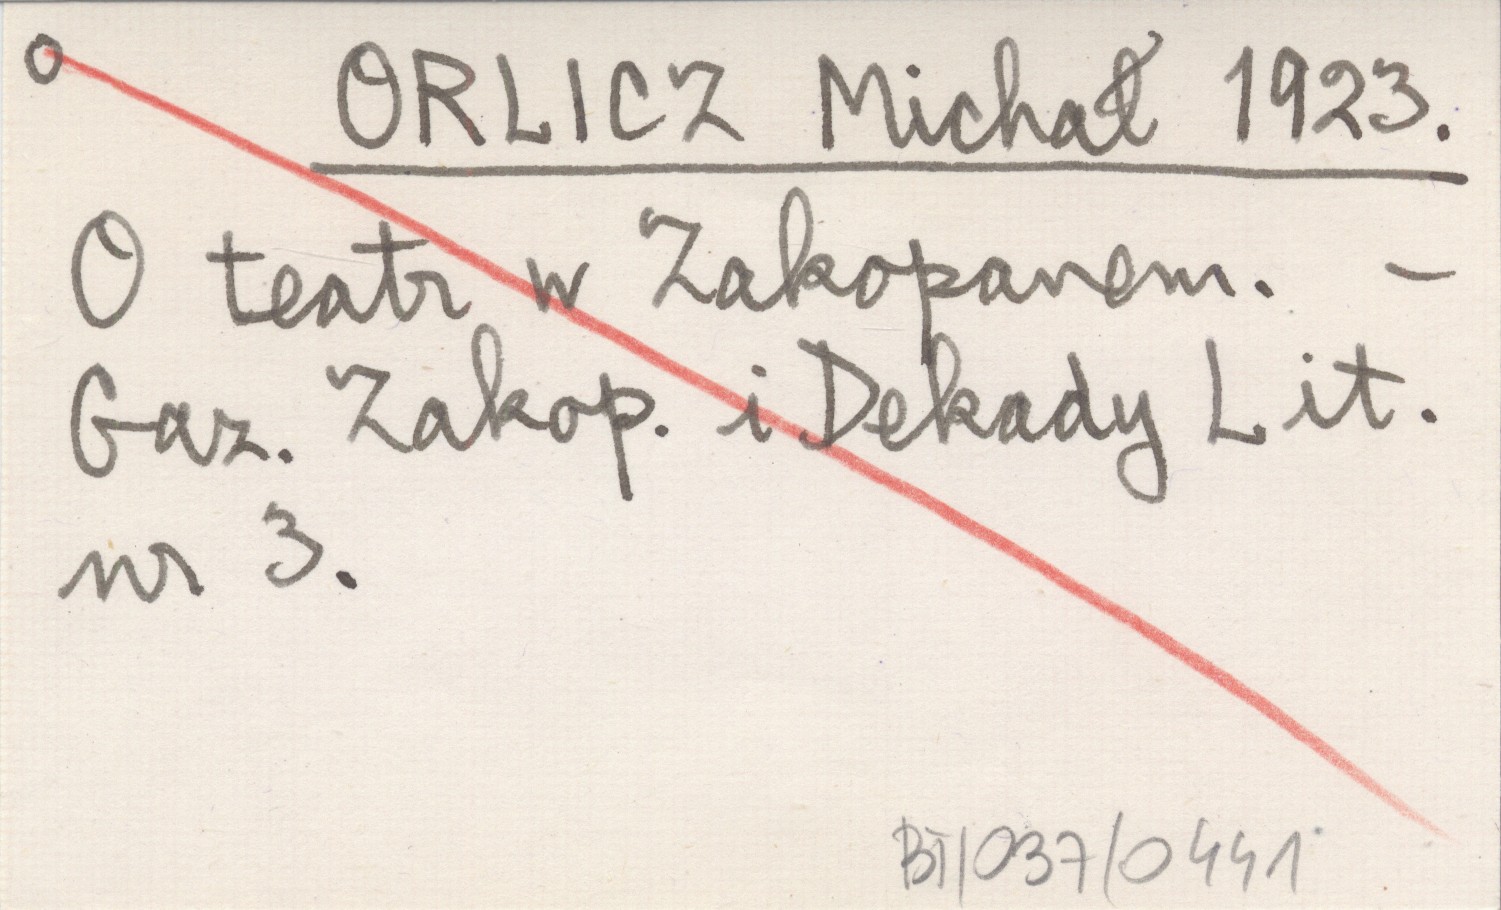 O ORLICZ Michał 1923.
O teatr w Zakopanem. –
Gaz. Zakop. i Dekady Lit.
nr 3.
BT/037/0441